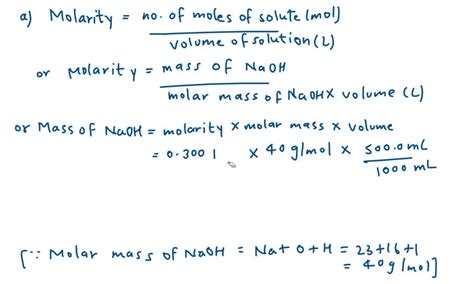 a) Molarity = no. of moles of solute (mol)
volume of solution (L)
or Molarity = mass of NaOH
molar mass of NaOH x volume (L)
or Mass of NaOH = molarity x molar mass x volume
= 0.300 1 x 40 g/mol x 500.0 mL
1000 mL
[∵ Molar mass of NaOH = Na + O + H = 23+16+1
= 40 g/mol]